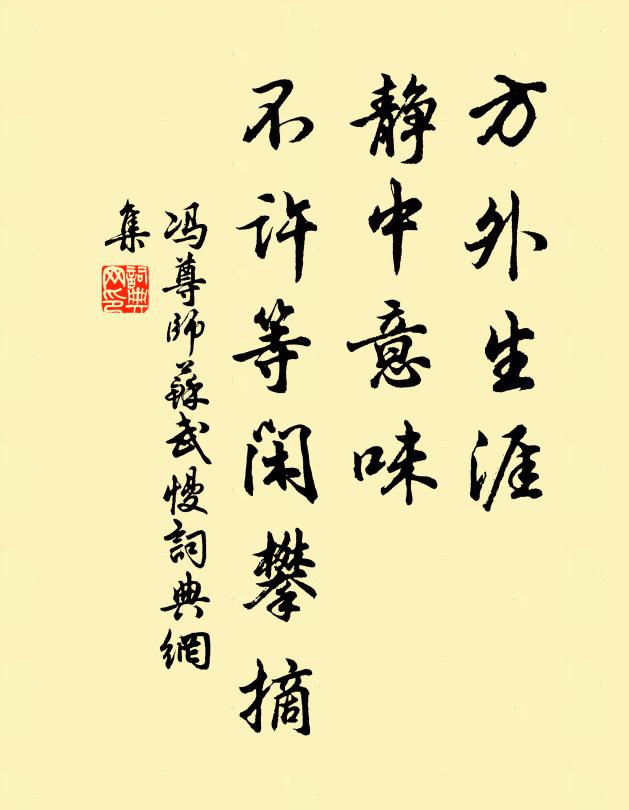 方外生涯
静中意味
不许等闲攀摘
冯尊师蘇武慢詞典網
集
詞典
网印